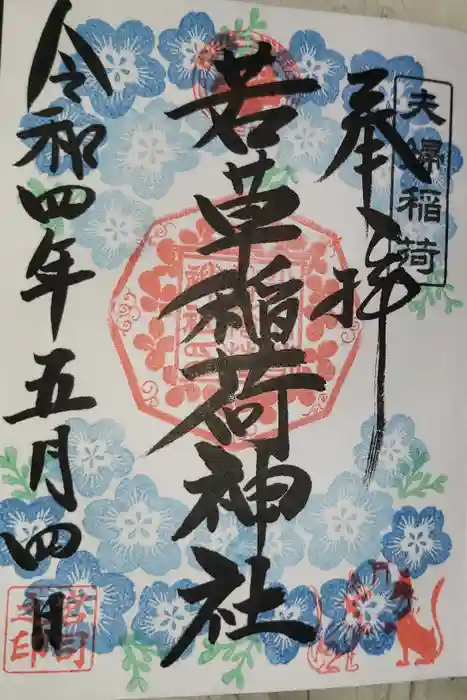 夫婦稲荷
奉拝
若草稲荷神社
令和四年五月四日
宮司
之印